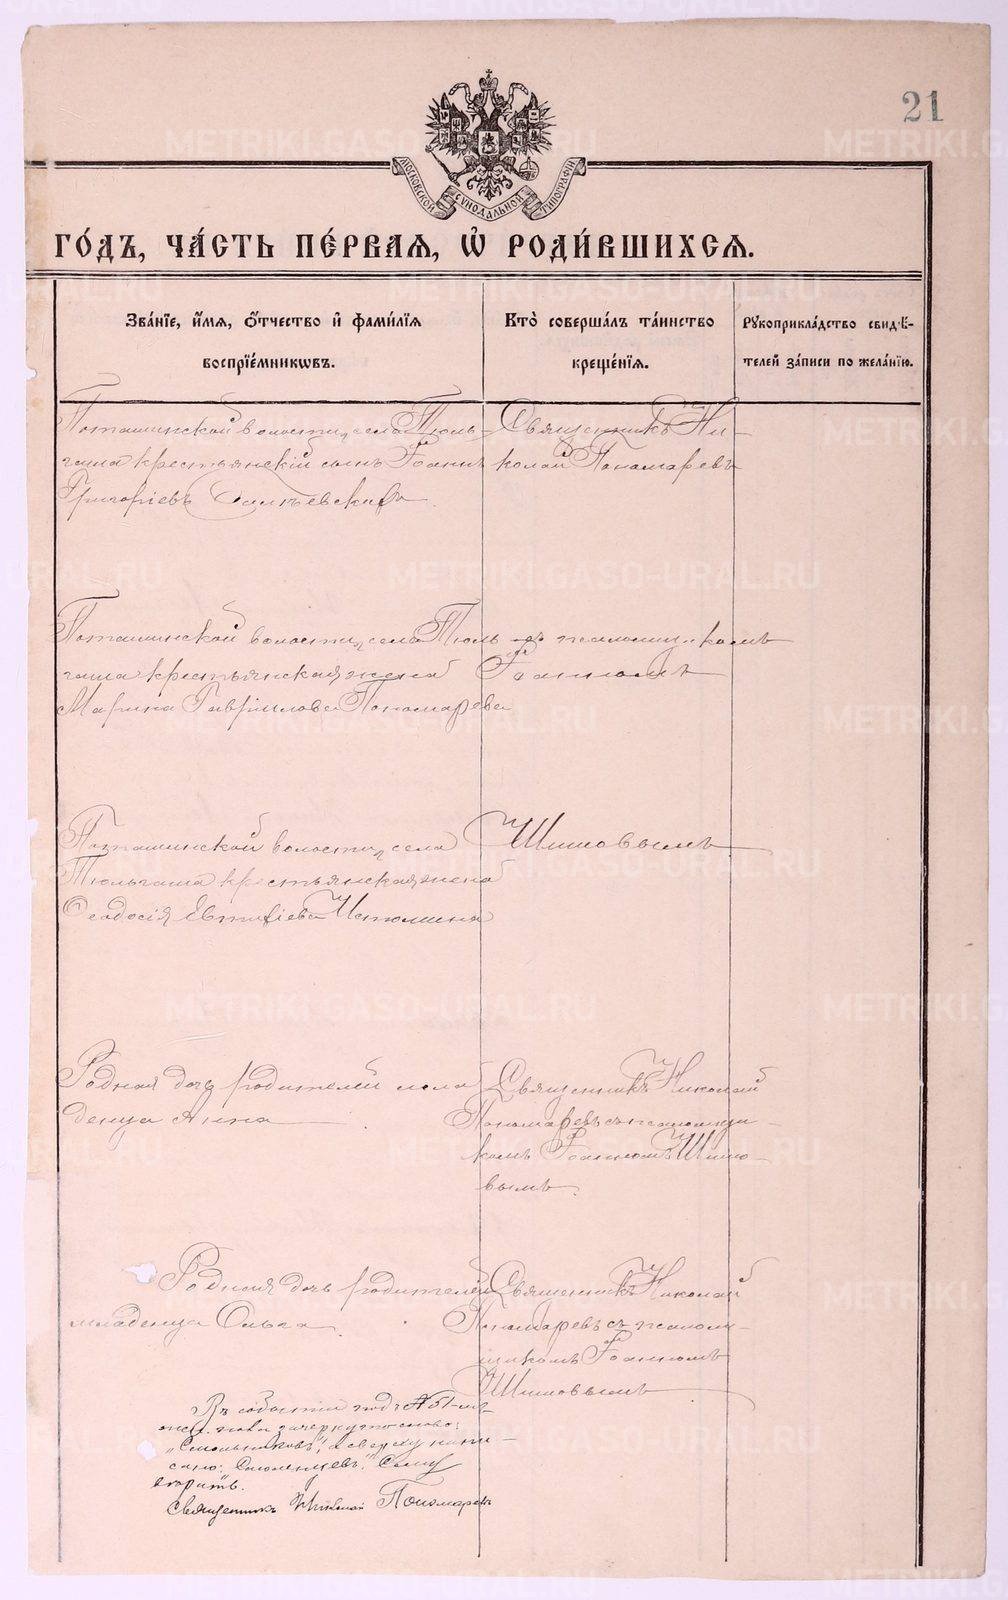 21
МОСКОВСКОЙ СѴНОДАЛЬНОЙ ТИПОГРАФІИ
ГО́ДЪ, ЧА́СТЬ ПЕ́РВАЯ, Ѡ҆ РОДИ́ВШИХСЯ.
Зва́нїе, и҆́мя, ѻ҆́тчество и҆ фами́лїя
воспрїе́мникѡвъ.
Кто̀ соверша́лъ та́инство
креще́нїя.
Рꙋкоприкла́дство свидѣ́-
телей за́писи по жела́нїю.
Поташинской волости, села Тюль-
гаша крестьянскій сынъ Іоаннъ
Григоріевъ
Священникъ Ни-
колай Пономаревъ
Поташинской волости, села Тюль
гаша крестьянская жена
Марина Гаврилова Пономарева
съ псаломщикомъ
Іоанномъ
Поташинской волости, села
Тюльгаша крестьянская жена
Феодосія Евтихіева Истомина
Шишовымъ
Родная дочь родителей мла
денца Анна
Священникъ Николай
Пономаревъ съ псаломщи-
комъ Іоанномъ Шишо-
вымъ.
Родная дочь родителей
младенца Ольга
Священникъ Николай
Пономаревъ съ псалом-
щикомъ Іоанномъ
Шишовымъ
Въ событіи подъ №
зачеркнуто слово:
"Смольниковъ", а сверху напи-
сано: Смоленцевъ". Сему
вѣрить.
Священникъ Николай Пономаревъ
METRIKI.GASO-URAL.RU